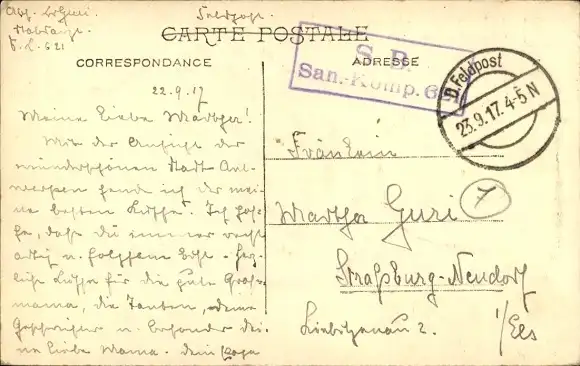 Feldpost.
S. 621
CARTE POSTALE
CORRESPONDANCE
ADRESSE
S. B.
San.-Komp. 621
D. Feldpost
23.9.17. 4-5 N
22.9.17
Meine liebe Marthe!
Mit der Ansicht der
wunderschönen Stadt Ant-
werpen sende ich dir mei-
ne besten Küsse. Ich hof-
fe, daß du immer recht
artig u. folgsam bist. Herz-
liche Küsse für die gute Groß-
mama, die Tanten,
Geschwister u. besonders dei-
ne liebe Mama. Dein Papa
Fräulein
Martha Guri
7
Straßburg-Neudorf
2.
i/Els